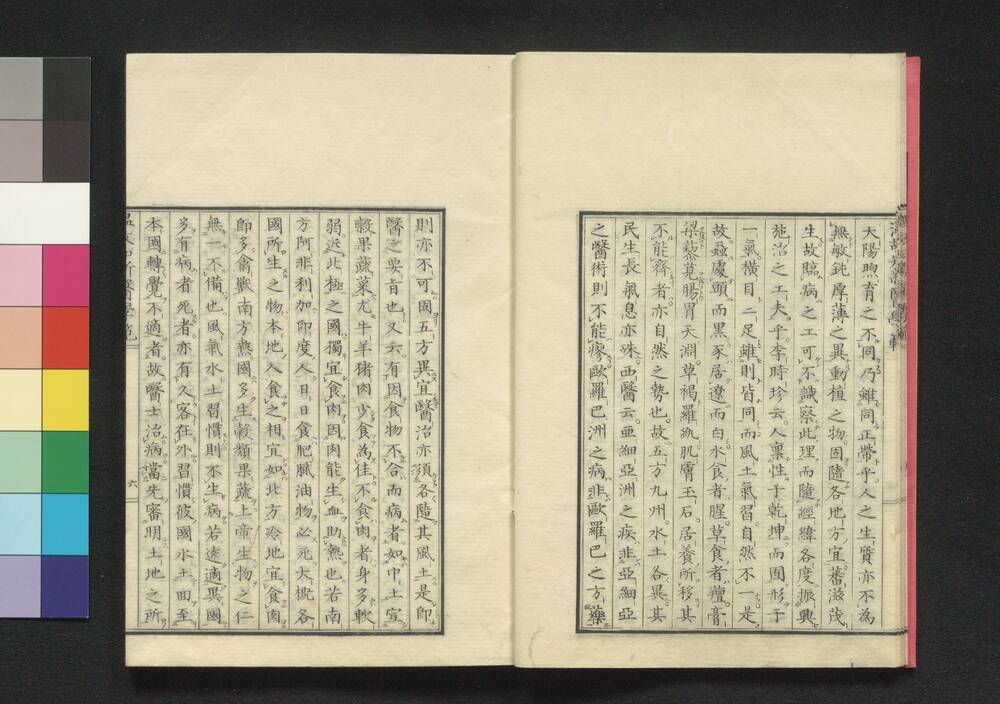 大陽煦育之不同乃雖同正帶乎人之生質亦不為
無敏鈍厚薄之異動植之物固隨各地方宜蕃滋茂
生故臨病之工可不識察此理而隨經緯各度振興
施治之工夫乎李時珍云人稟性于乾坤而囿形于
一氣橫目二足雖則皆同而風土氣習自然不一是
故蝨處頭而黑豕居遼而白水食者腥草食者羶膏
粱藜莧腸胃天淵草褐羅紈肌膚玉石居養所移其
不能齊者亦自然之勢也故五方九州水土各異其
民生長氣息亦殊西醫云亜細亞洲之疾非亞細亞
之醫術則不能瘳歐羅巴洲之病非歐羅巴之方藥
則亦不可固五方異宜醫治亦須各隨其風土是即
醫之要旨也又云有因食物不合而病者如中土宜
穀果蔬菜尤牛羊猪肉少食為佳不食肉者身多軟
弱近北極之國獨宜食肉因肉能生血助熱也若南
方阿非利加印度人日日食肥膩油物必死大概各
國所生之物本地人食之相宜如北方冷地宜食肉
即多禽獸南方熱國多生穀類果蔬上帝生物之仁
無一不備也風氣水土習慣則不生病若遠適異國
多有病者死者亦有久客在外習慣彼國水土面至
本國轉覺不適者故醫士治病當先審明土地之所
六